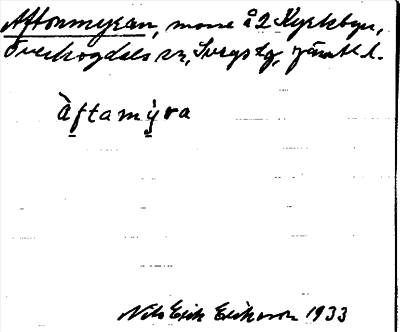 Aftonmyran, mosse å 2 Kyrkbyn,
Överhogdals sn, Svegs tg, Jämtl. l.
Àftamýra
Nils Erik Erikson 1933